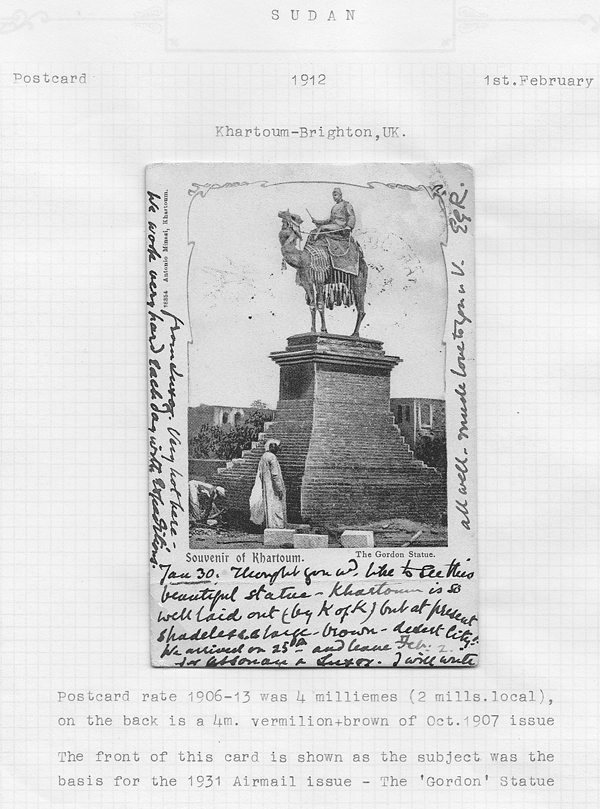 SUDAN
Postcard 1912 1st.February
Khartoum-Brighton,UK.
Antonio Minasi, Khartoum.
Souvenir of Khartoum. The Gordon Statue.
Jan 30. Thought you wd. like to see this
beautiful statue - Khartoum is so
well laid out (by K of K) but at present
shadeless a large - brown - desert city.
We arrived on 25th and leave Feb. 2.
for Assouan & Luxor. I will write
from Luxor. Very hot here.
We work very hard each day with
all well - much love to you & V. EGR.
Postcard rate 1906-13 was 4 milliemes (2 mills.local),
on the back is a 4m. vermilion+brown of Oct.1907 issue
The front of this card is shown as the subject was the
basis for the 1931 Airmail issue - The 'Gordon' Statue